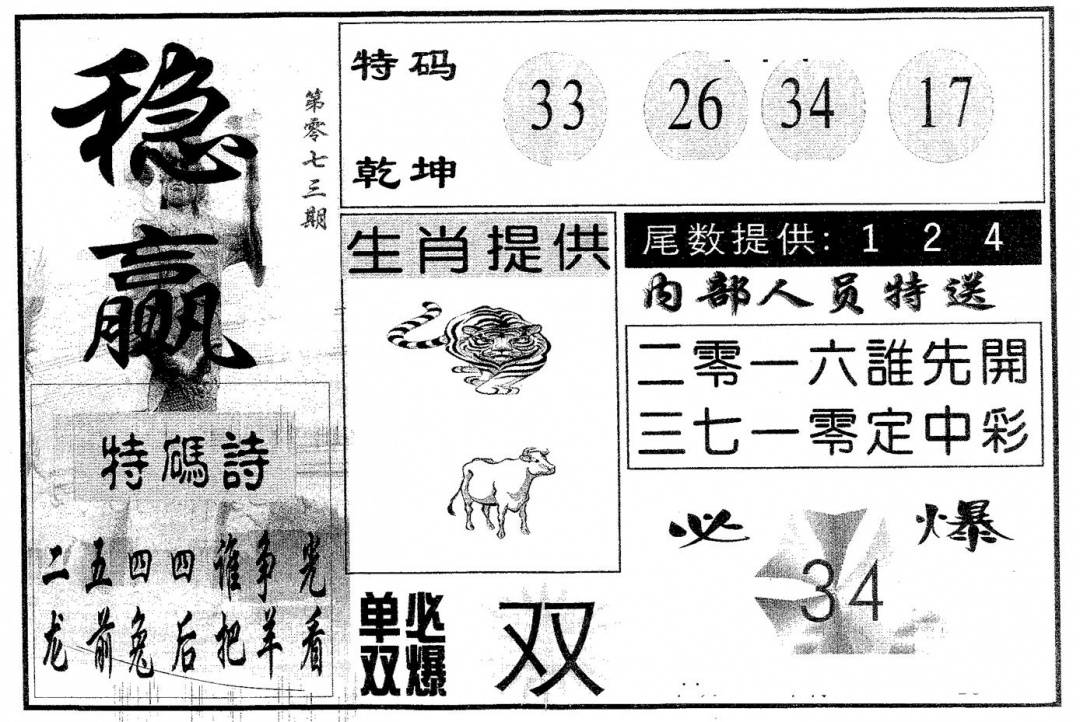 稳赢
第零七三期
特码诗
二五四四谁争宪
龙前兔后把羊看
特码
乾坤
33 26 34 17
生肖提供
尾数提供: 1 2 4
内部人员特送
二零一六誰先開
三七一零定中彩
必爆
34
单双
必爆
双